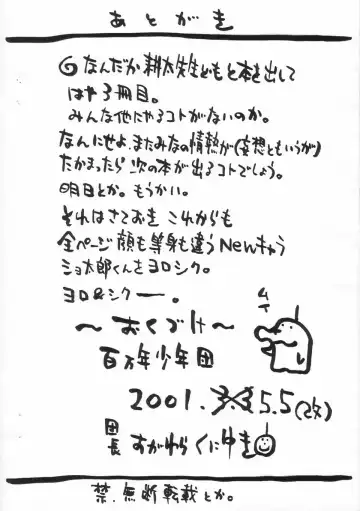 あとがき
なんだか耕太先生どもと本を出して
はや3冊目。
みんな他にやるコトがないのか。
なんにせよ、またみなの情熱が(妄想ともいうが)
たかまったら次の本が出るコトでしょう。
明日とか。もうかい。
それはさておき これからも
全ページ顔も等身も違うNewキャラ
ショ太郎くんをヨロシク。
ヨロ&シクー。
～おくづけ～
百万年少年団
2001.3.3 5.5(改)
団長 すがわらくにゆき
禁.無断転載とか。